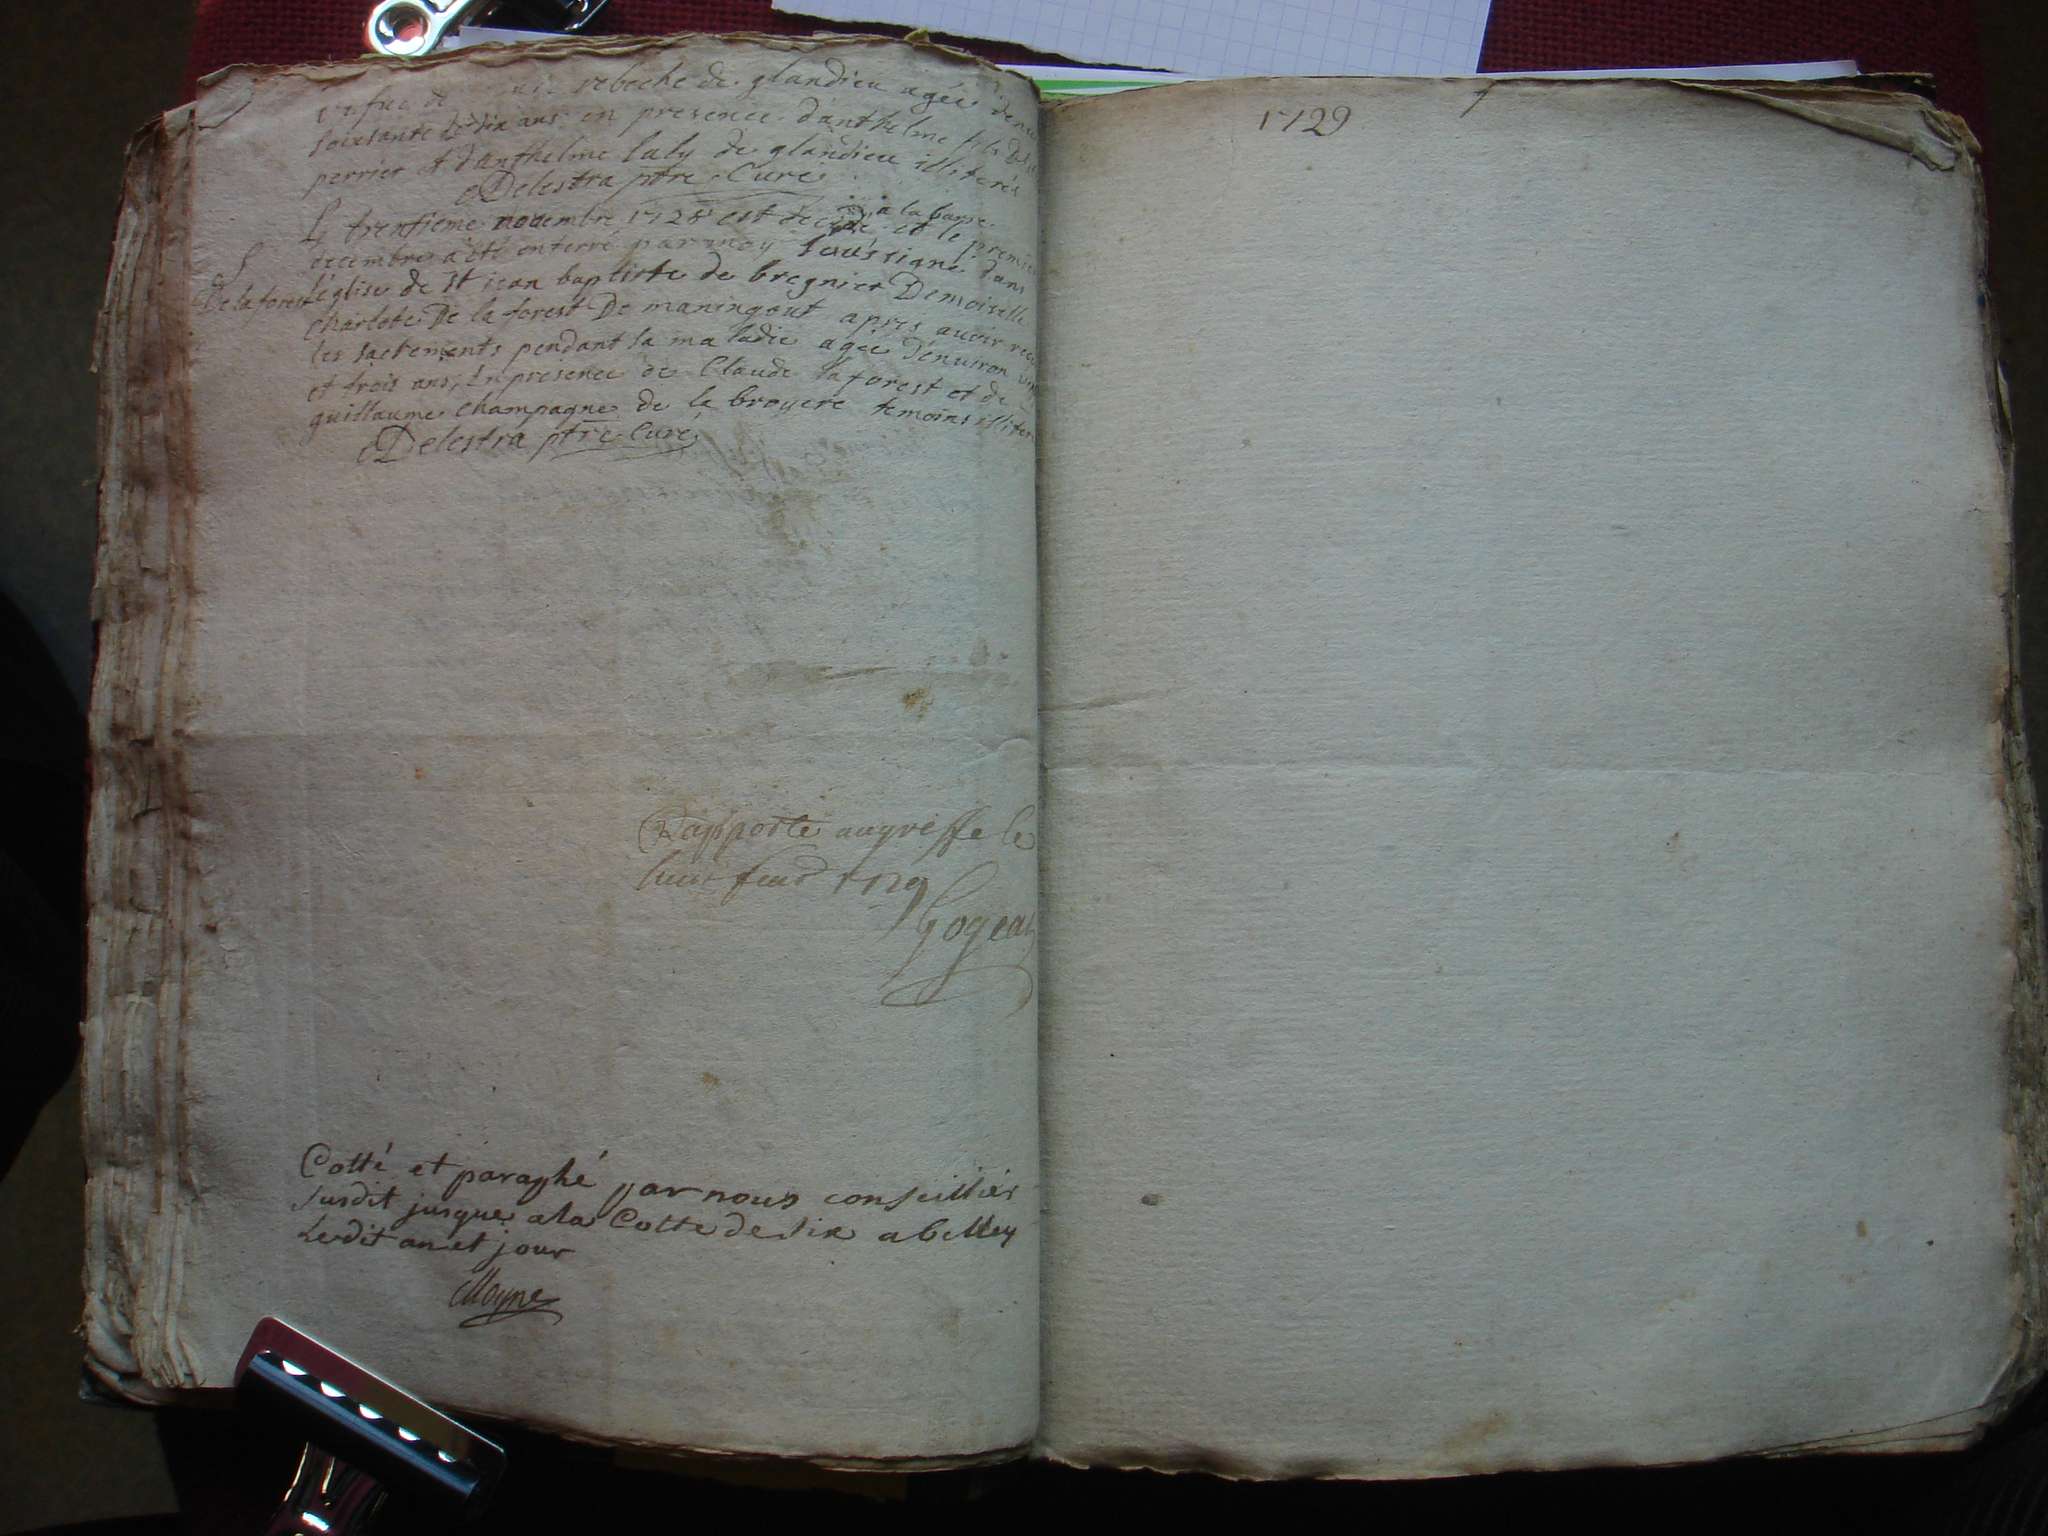 rebeche de glandieu agée denui
soixante et dix ans en presence d'anthelme fils de
perrier et d'anthelme laly de glandieu illiterés
Delestra ptre Curé
Le trentieme novembre 1728 est decedé à la barre et le premier
decembre a été enterré par moy soussigné dans
De la forest
l'eglise de st jean baptiste de bregnier Demoiselle
Charlote De la forest De maningout apres avoir recu
les sacrements pendant sa maladie agée d'environ vin
et trois ans, En presence de Claude laforest et de
guillaume Champagne de la broyere temoins illiter
Delestra ptre Curé
Rapporté au greffe le
huit 1729
Gogeat
Cotté et paraphé par nous conseillier
susdit jusque a la Cotte de six a belley
Ledit an et jour
Moyne
1729
7